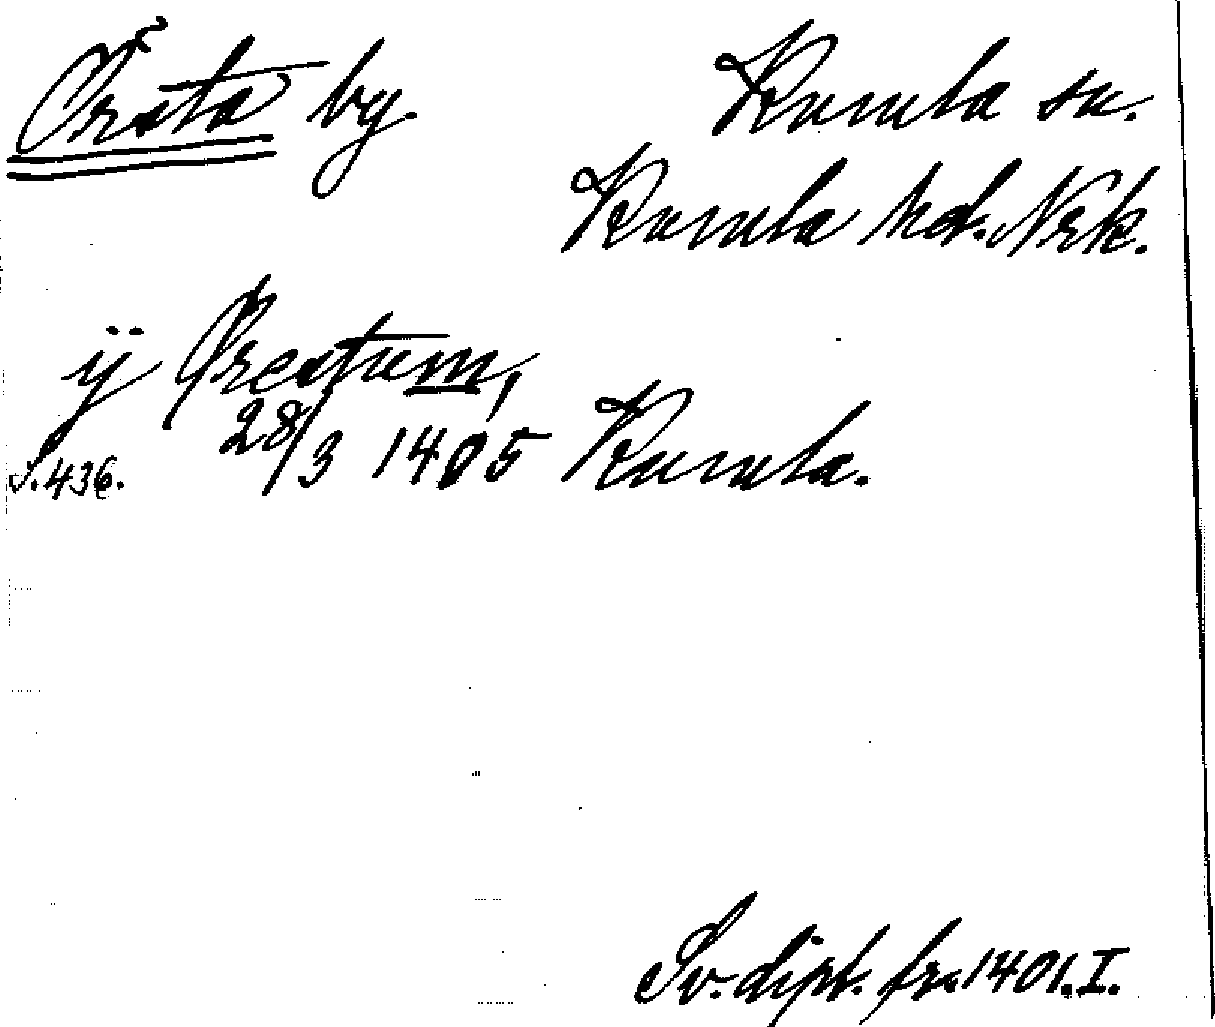 Örsta by. Kumla sn.
Kumla hd. Nrk.
ÿ Ørestum,
S. 436. 28/3 1405 Kumla.
Sv. dipl. fr. 1401. I.